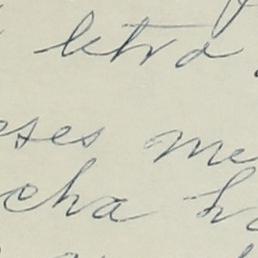 letra
eses me
cha h